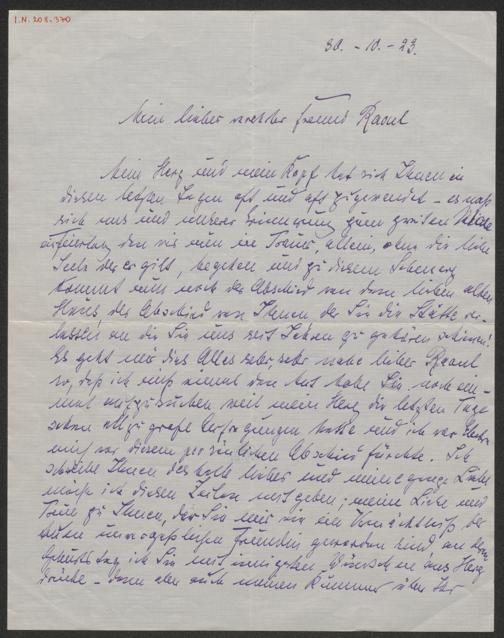 I.N. 208.370
30. - 10. - 23.
Mein lieber verehrter Freund Raoul
Mein Herz und mein Kopf hat sich Ihnen in
diesen letzten Tagen oft und oft zugewendet – es
sich uns und unserer Erinnerung zum zweiten
den wir nun in Trauer, allein, ohne die liebe
Seele der er gilt, begehen und zu diesem Schmerz
kommt nun noch der Abschied von dem lieben alten
Haus, der Abschied von Ihnen der Sie die Stätte ver-
lassen an die Sie uns seit Jahren zu gehören schienen!
Es geht mir dies Alles sehr, sehr nahe lieber Raoul
so, daß ich nicht einmal den Mut habe Sie noch ein-
mal aufzusuchen weil mein Herz die letzten Tage
schon allzu große hatte und ich
mich vor diesem persönlichen Abschied fürchte. Ich
schreibe Ihnen deshalb lieber und meine ganze Liebe
möchte ich diesen Zeilen mitgeben; meine Liebe und
Treue zu Ihnen, der Sie mir wie ein Vermächtniß der
unvergeßlichen Freundin geworden sind, an deren
Geburtstag ich Sie mit innigsten Wünschen ans Herz
drücke – dann aber auch meinen Kummer über Ihr